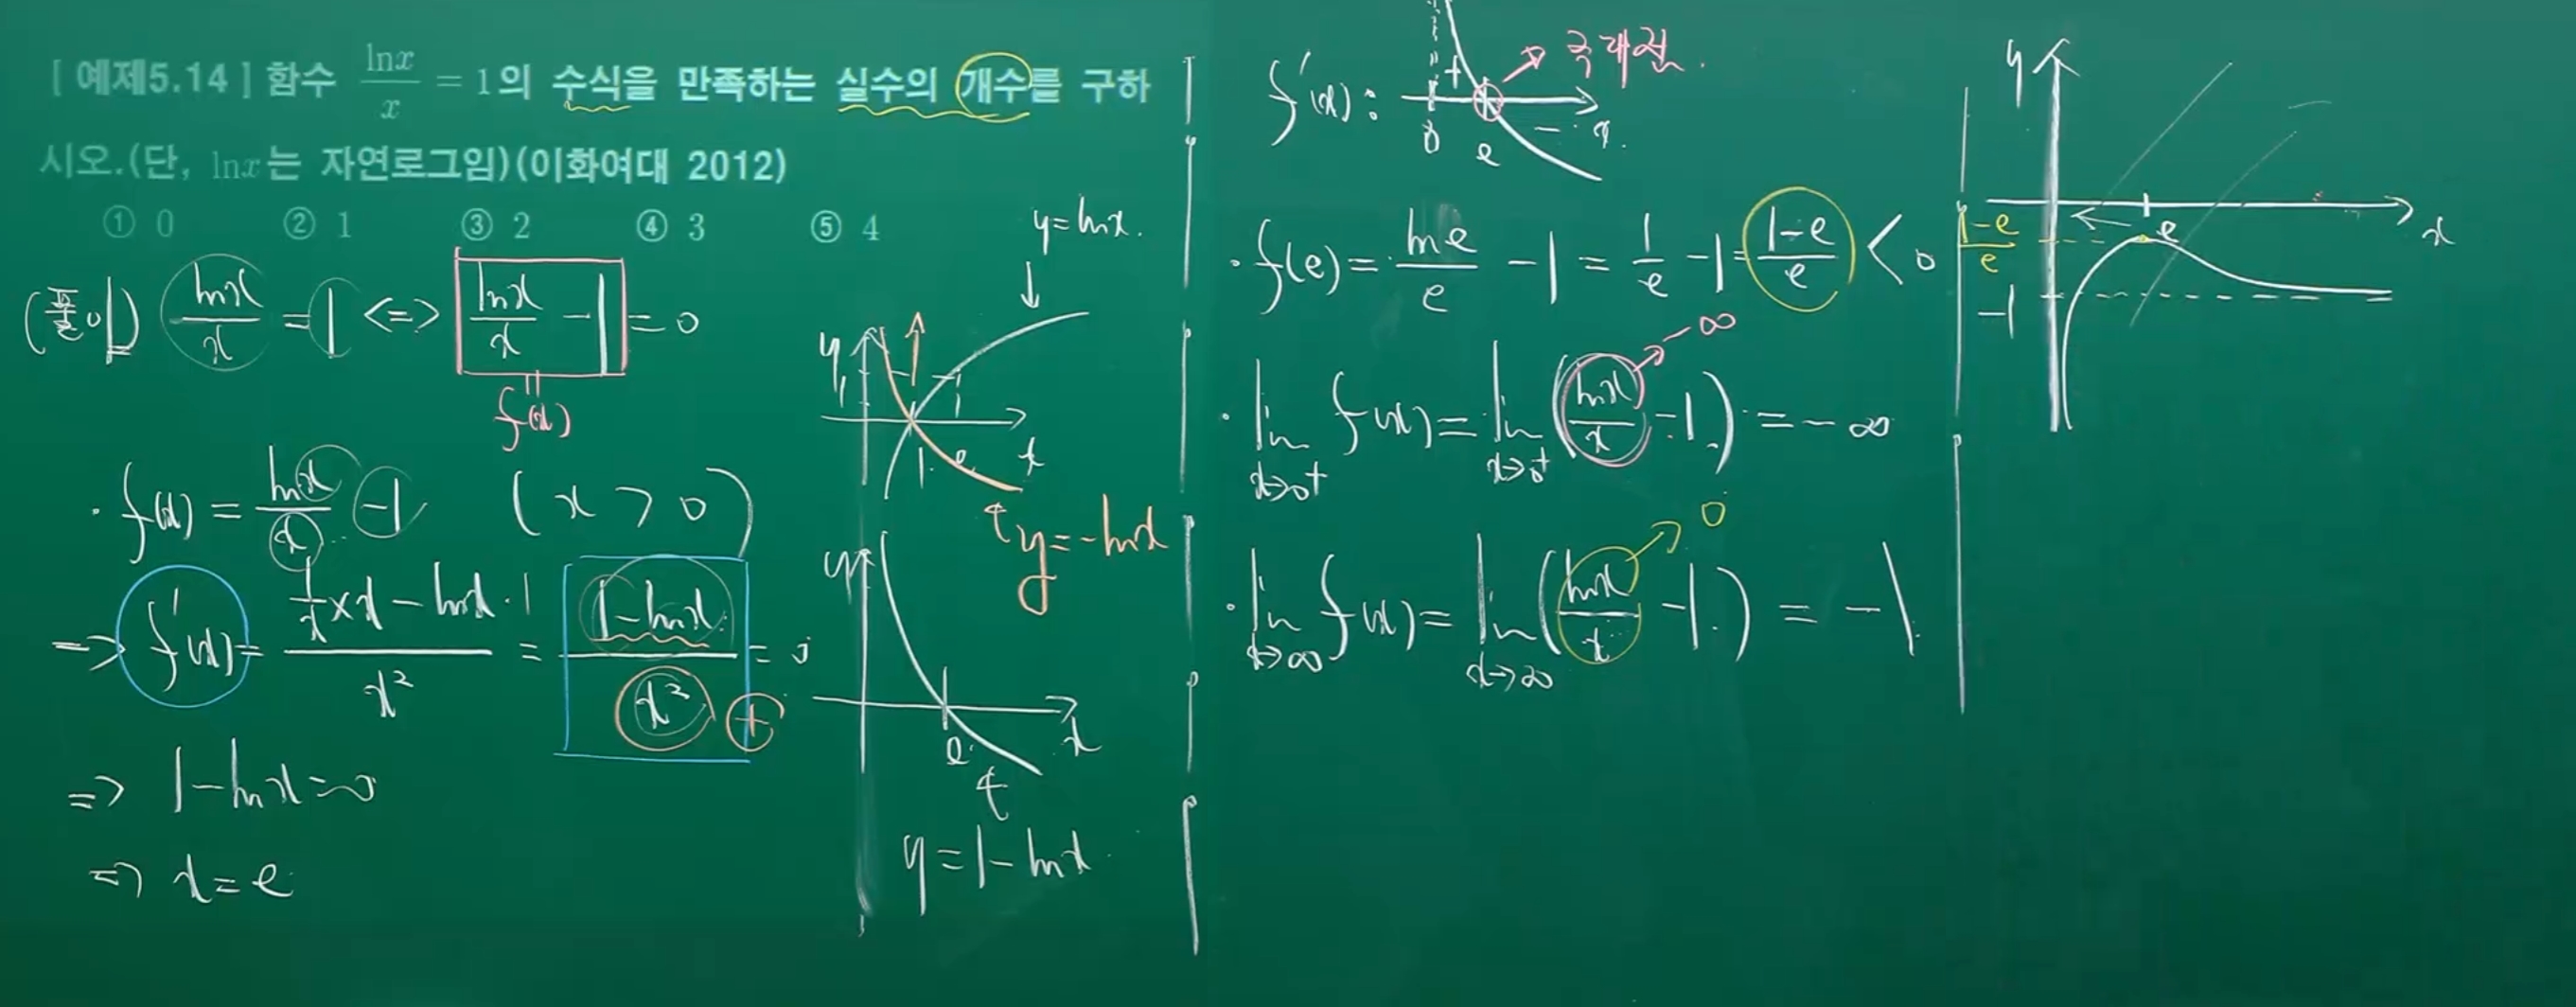 [ 예제5.14 ] 함수 lnx/x = 1의 수식을 만족하는 실수의 개수를 구하
시오.(단, lnx는 자연로그임)(이화여대 2012)
① 0 ② 1 ③ 2 ④ 3 ⑤ 4
(풀이) lnx/x = 1 <=> lnx/x - 1 = 0
f(x)
· f(x) = lnx/x - 1 (x > 0)
=> f'(x) = (1/x × x - lnx · 1)/x² = (1 - lnx)/x² = 0
+
=> 1 - lnx = 0
=> x = e
y = lnx.
y
1
1 e x
y = -lnx
y
e x
y = 1 - lnx
f'(x) :
+ -
0 e x
극대점.
· f(e) = lne/e - 1 = 1/e - 1 = (1-e)/e < 0
· lim x→0+ f(x) = lim x→0+ (lnx/x - 1) = -∞
-∞
· lim x→∞ f(x) = lim x→∞ (lnx/x - 1) = -1
0
y
x
e
(1-e)/e
-1